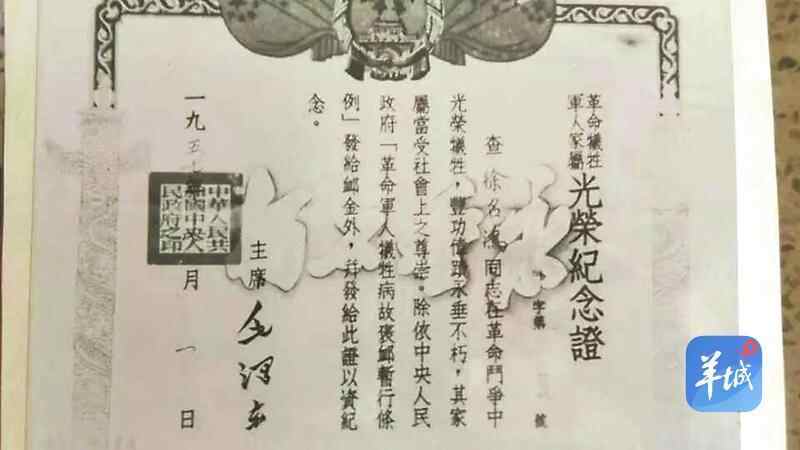 革命犧牲
軍人家屬
光榮紀念證
字第 號
查徐名鴻同志在革命鬥爭中
光榮犧牲,豐功偉蹟永垂不朽,其家
屬當受社會上之尊崇。除依中央人民
政府「革命軍人犧牲病故褒卹暫行條
例」發給卹金外,并發給此證以資紀
念。
主席 毛澤東
中華人民共
和國中央人
民政府之印
一九五 月一日
羊城